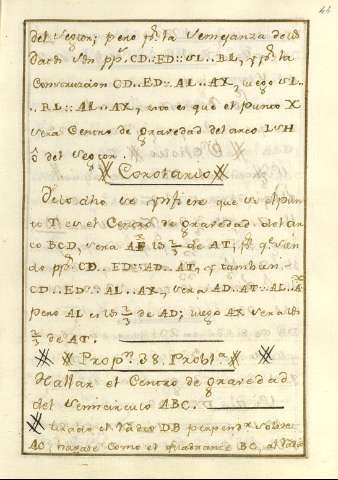 44
del sector; pero pr. la semejanza de los
dada son pp. CD..ED::VL..BL, y pr. la
Construccion CD..ED::AL..AX, luego VL..
..BL::AL..AX, esto es que el punto X
sera Centro de gravedad del arco LVH
ô del sector.
Corolario
De lo dho se ynfiere que si el pun
to T es el Centro de gravedad del ar
co BCD, sera AX los 2/3 de AT; pr. q. sien
do pp. CD..ED::AD..AT, y tambien
CD..ED::AL..AX, sera AD..AT::AL..AX
pero AL es los 2/3 de AD; luego AX sera los
2/3 de AT.
Propn. 38. Probla.
Hallar el Centro de gravedad
del semicirculo ABC.
tirado el radio DB perpendr. sobre
AC hagase como el quadrante BC, al radio